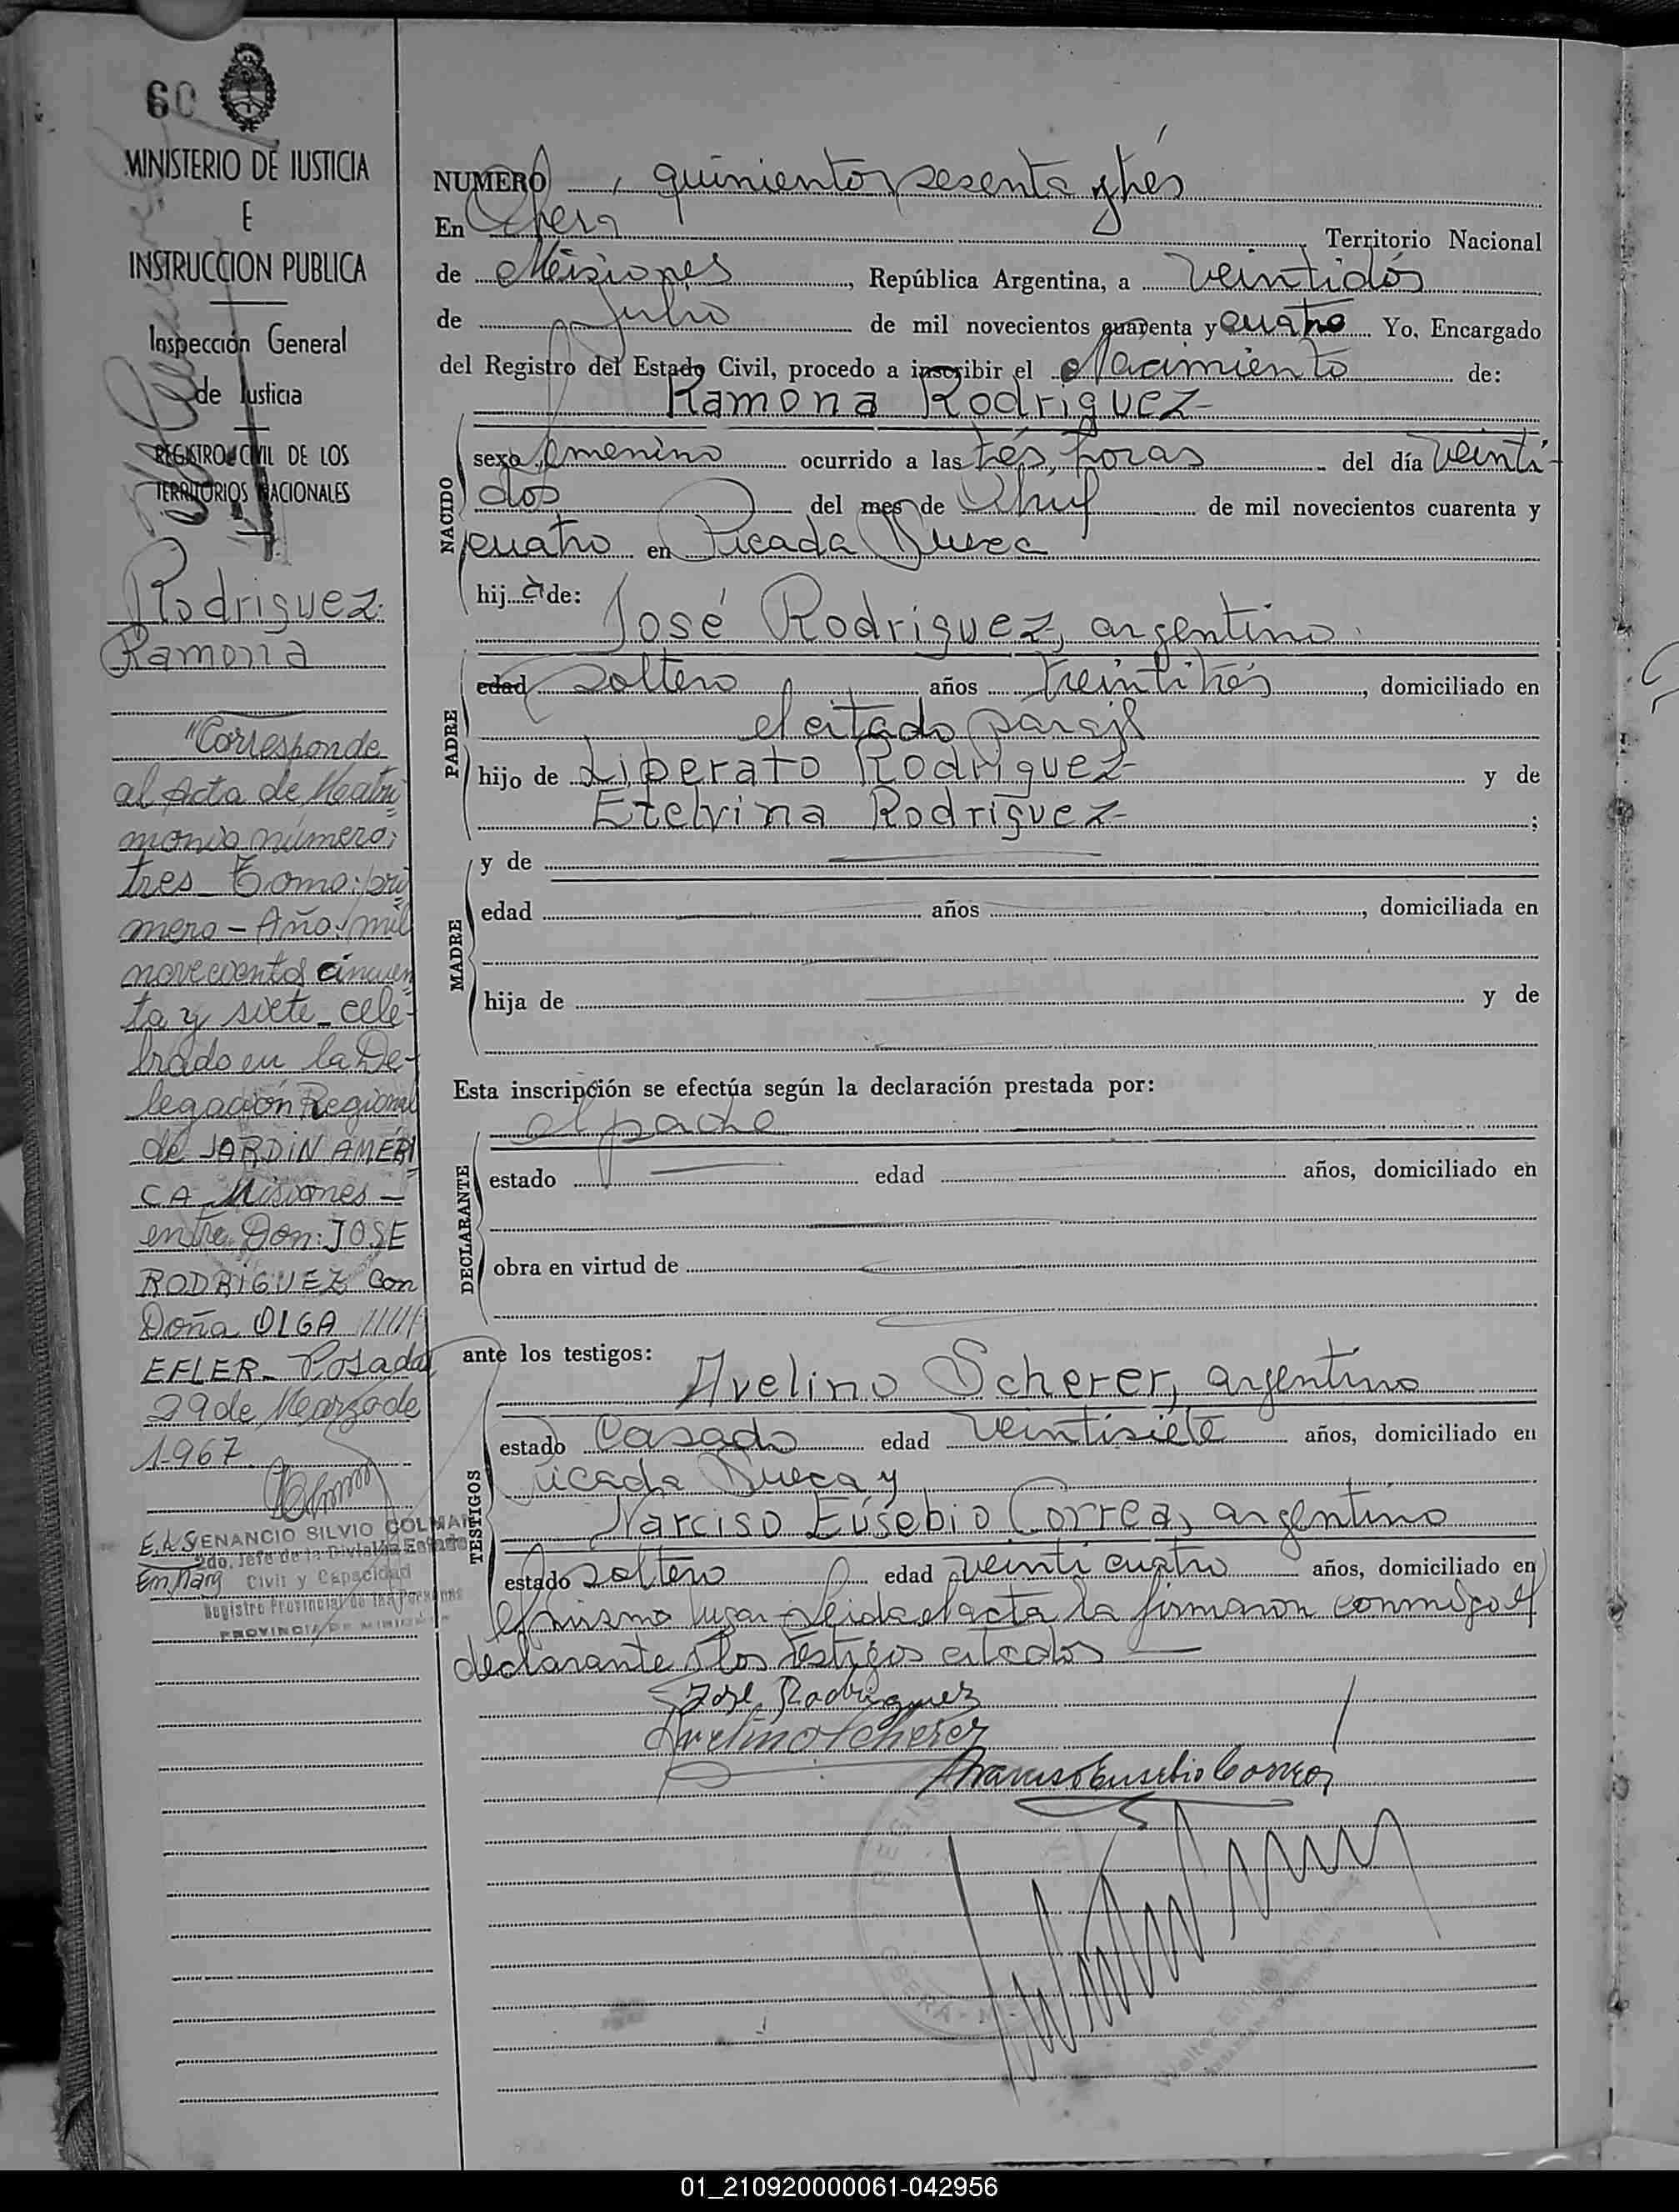 60
MINISTERIO DE JUSTICIA
E
INSTRUCCION PUBLICA
Inspección General
de Justicia
REGISTRO CIVIL DE LOS
TERRITORIOS NACIONALES
Rodriguez
Ramona
"Corresponde
al Acta de Matri=
monio número:
tres Tomo: pri=
mero - Año: mil
novecientos cincuen=
ta y siete - cele-
brado en la De-
legación Regional
de JARDIN AMÉRI=
CA - Misiones -
entre Don: JOSE
RODRIGUEZ con
Doña OLGA
EFLER - Posadas
29 de Marzo de
1967
VENANCIO SILVIO COLMAN
2do. Jefe de la División Estado
Civil y Capacidad
Registro Provincial de las Personas
PROVINCIA DE MISIONES
NUMERO quinientos sesenta y trés
En Oberá Territorio Nacional
de Misiones, República Argentina, a veintidós
de Julio de mil novecientos cuarenta y cuatro Yo, Encargado
del Registro del Estado Civil, procedo a inscribir el Nacimiento de:
Ramona Rodriguez
NACIDO
sexo femenino ocurrido a las trés horas del día veinti-
dos del mes de Abril de mil novecientos cuarenta y
cuatro en Picada Sueca
hij a de:
José Rodriguez, argentino
PADRE
edad soltero años treintitrés, domiciliado en
el citado paraje
hijo de Liberato Rodriguez y de
Etelvina Rodriguez ;
MADRE
y de
edad años , domiciliada en
hija de y de
Esta inscripción se efectúa según la declaración prestada por:
el padre
DECLARANTE
estado edad años, domiciliado en
obra en virtud de
ante los testigos:
TESTIGOS
Avelino Scherer, argentino
estado Casado edad veintisiete años, domiciliado en
Picada Sueca y
Narciso Eusebio Correa, argentino
estado soltero edad veinticuatro años, domiciliado en
el mismo lugar - leida el acta la firmaron conmigo el
declarante y los testigos citados
José Rodriguez
Avelino Scherer
Narciso Eusebio Correa
OBERA
01_210920000061-042956